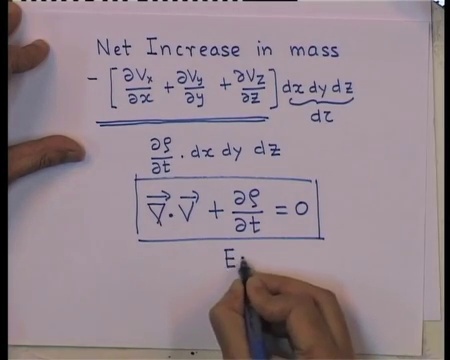 Net Increase in mass
- [ ∂Vx/∂x + ∂Vy/∂y + ∂Vz/∂z ] dx dy dz
dτ
∂ρ/∂t . dx dy dz
∇⃗ · V⃗ + ∂ρ/∂t = 0
E